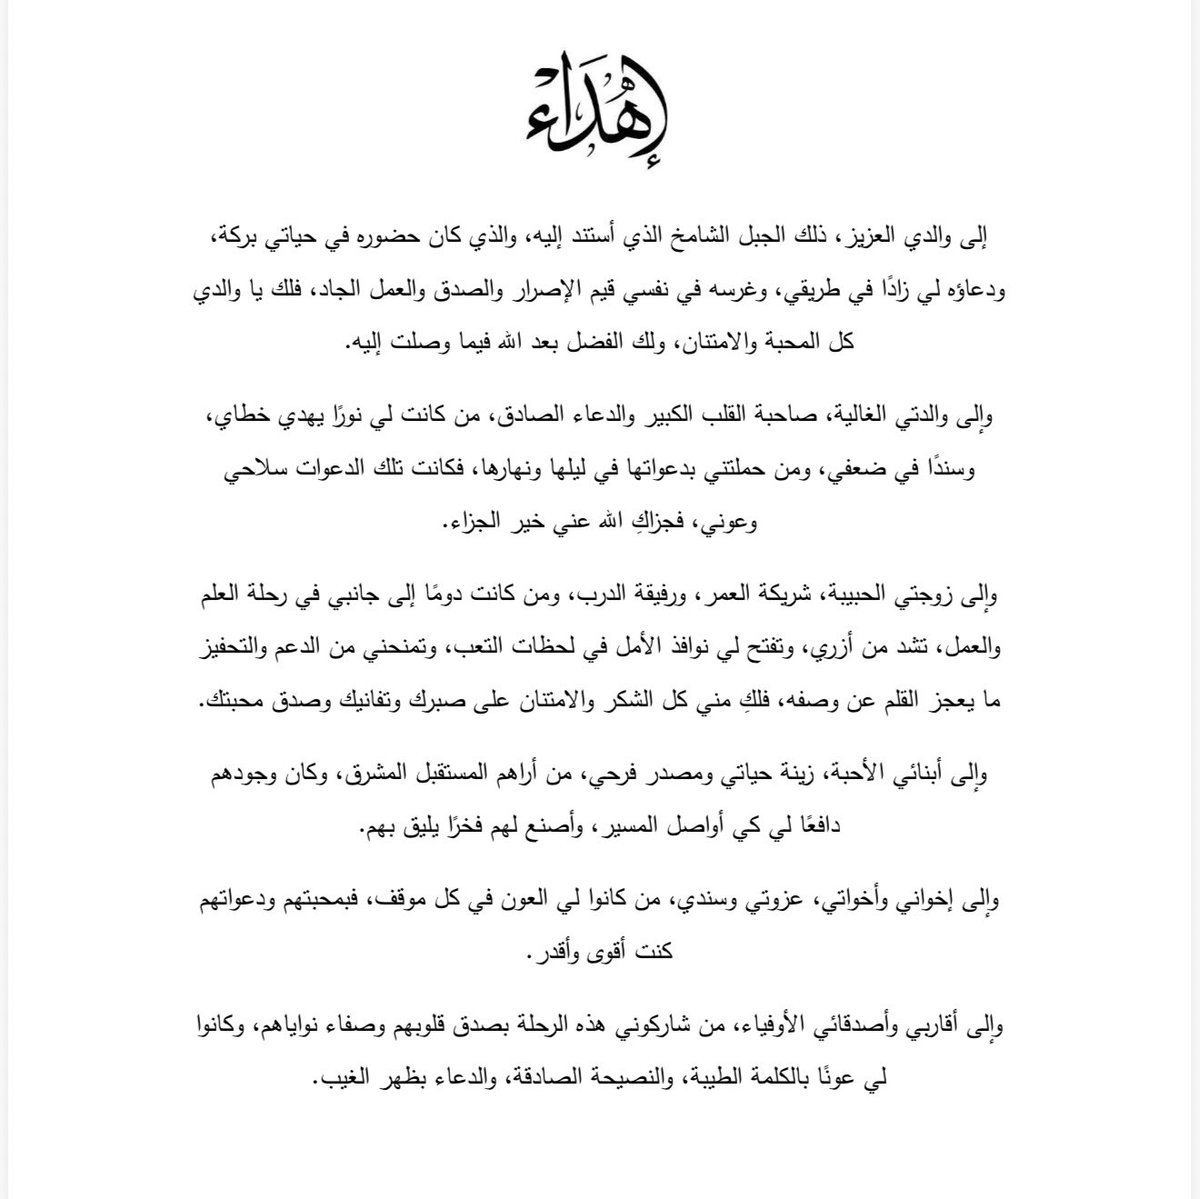 إهْدَاءْ
إلى والدي العزيز، ذلك الجبل الشامخ الذي أستند إليه، والذي كان حضوره في حياتي بركة،
ودعاؤه لي زادًا في طريقي، وغرسه في نفسي قيم الإصرار والصدق والعمل الجاد، فلك يا والدي
كل المحبة والامتنان، ولك الفضل بعد الله فيما وصلت إليه.
وإلى والدتي الغالية، صاحبة القلب الكبير والدعاء الصادق، من كانت لي نورًا يهدي خطاي،
وسندًا في ضعفي، ومن حملتني بدعواتها في ليلها ونهارها، فكانت تلك الدعوات سلاحي
وعوني، فجزاكِ الله عني خير الجزاء.
وإلى زوجتي الحبيبة، شريكة العمر، ورفيقة الدرب، ومن كانت دومًا إلى جانبي في رحلة العلم
والعمل، تشد من أزري، وتفتح لي نوافذ الأمل في لحظات التعب، وتمنحني من الدعم والتحفيز
ما يعجز القلم عن وصفه، فلكِ مني كل الشكر والامتنان على صبرك وتفانيك وصدق محبتك.
وإلى أبنائي الأحبة، زينة حياتي ومصدر فرحي، من أراهم المستقبل المشرق، وكان وجودهم
دافعًا لي كي أواصل المسير، وأصنع لهم فخرًا يليق بهم.
وإلى إخواني وأخواتي، عزوتي وسندي، من كانوا لي العون في كل موقف، فبمحبتهم ودعواتهم
كنت أقوى وأقدر.
وإلى أقاربي وأصدقائي الأوفياء، من شاركوني هذه الرحلة بصدق قلوبهم وصفاء نواياهم، وكانوا
لي عونًا بالكلمة الطيبة، والنصيحة الصادقة، والدعاء بظهر الغيب.